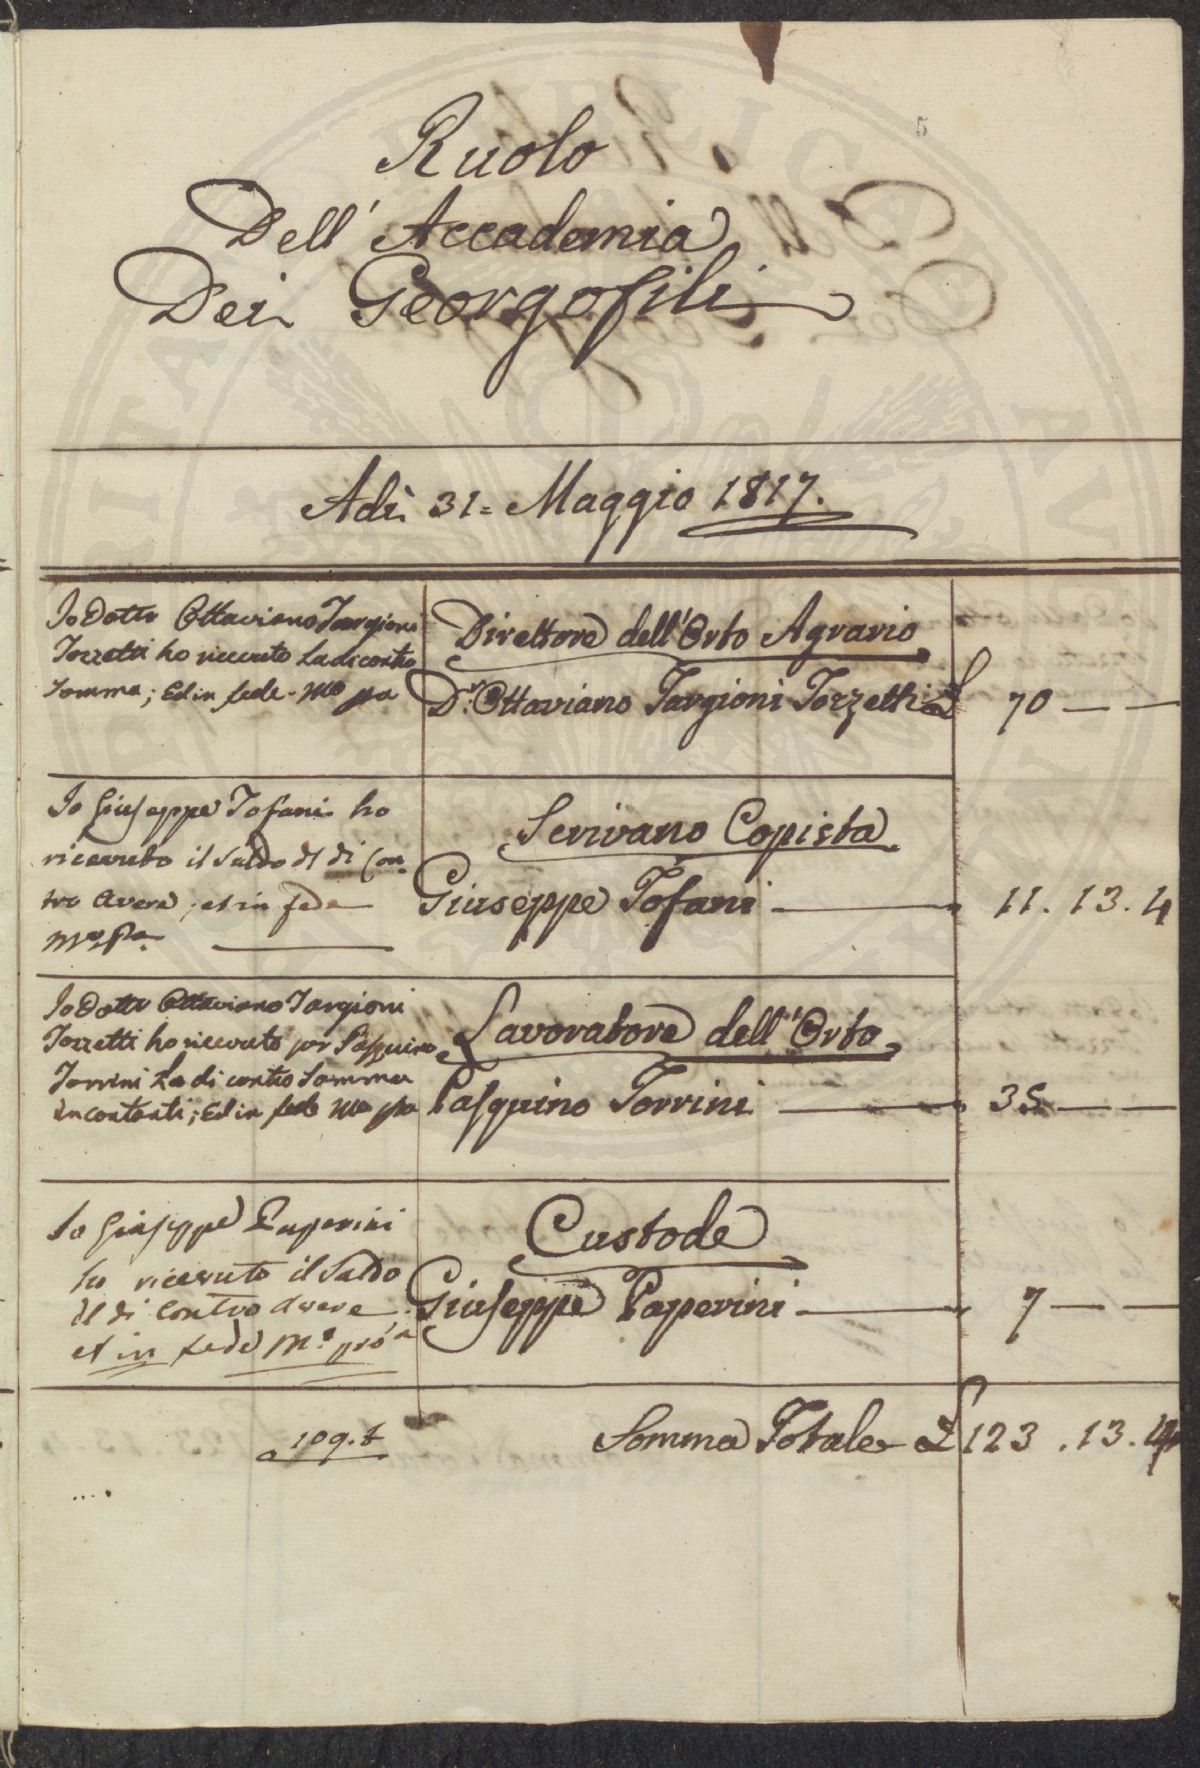 5
Ruolo
Dell' Accademia
Dei Georgofili
Adì 31= Maggio 1817.
Io Dottr Ottaviano Targioni
Tozzetti ho ricevuto La di contro
Somma; Ed in fede Mo pa
Direttore dell'Orto Agrario
Dr. Ottaviano Targioni Tozzetti £ 70 — —
Io Giuseppe Tofani ho
ricevuto il Saldo dl di Con-
tro Avere, et in fede
Mo Pa
Scrivano Copista
Giuseppe Tofani — 11. 13. 4
Io Dottr Ottaviano Targioni
Tozzetti ho ricevuto per Pasquino
Torrini La di contro Somma
in contanti; Ed in fede Mo pa
Lavoratore dell'Orto
Pasquino Torrini — 35 — —
Io Giuseppe Paperini
ho ricevuto il Saldo
dl di Contro Avere
et in fede Mo. proa
Custode
Giuseppe Paperini — 7 — —
Somma Totale £ 123. 13. 4